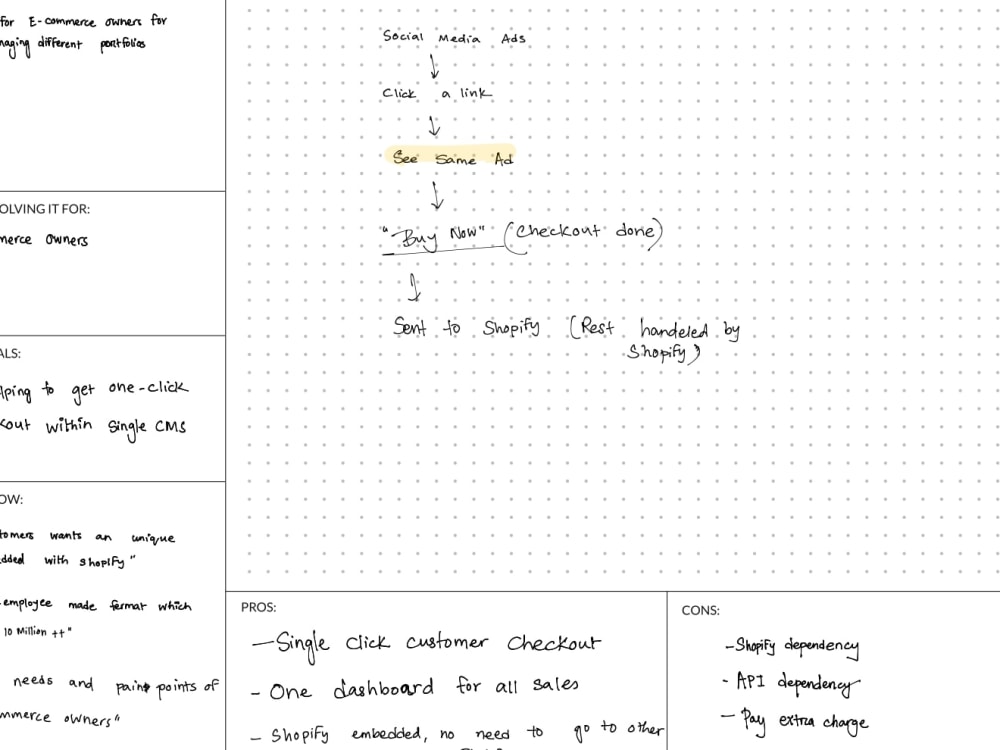 for E-commerce owners for
naging different portfolios
OLVING IT FOR:
merce owners
ALS:
lping to get one-click
kout within single CMS
OW:
tomers wants an unique
dded with shopify"
employee made format which
10 Million ++"
needs and pain points of
mmerce owners"
Social Media Ads
Click a link
See Same Ad
"Buy Now" (Checkout done)
Sent to Shopify (Rest handeled by
Shopify)
PROS:
— Single click customer checkout
- One dashboard for all sales
- Shopify embedded, no need to go to other
CONS:
- Shopify dependency
- API dependency
- Pay extra charge